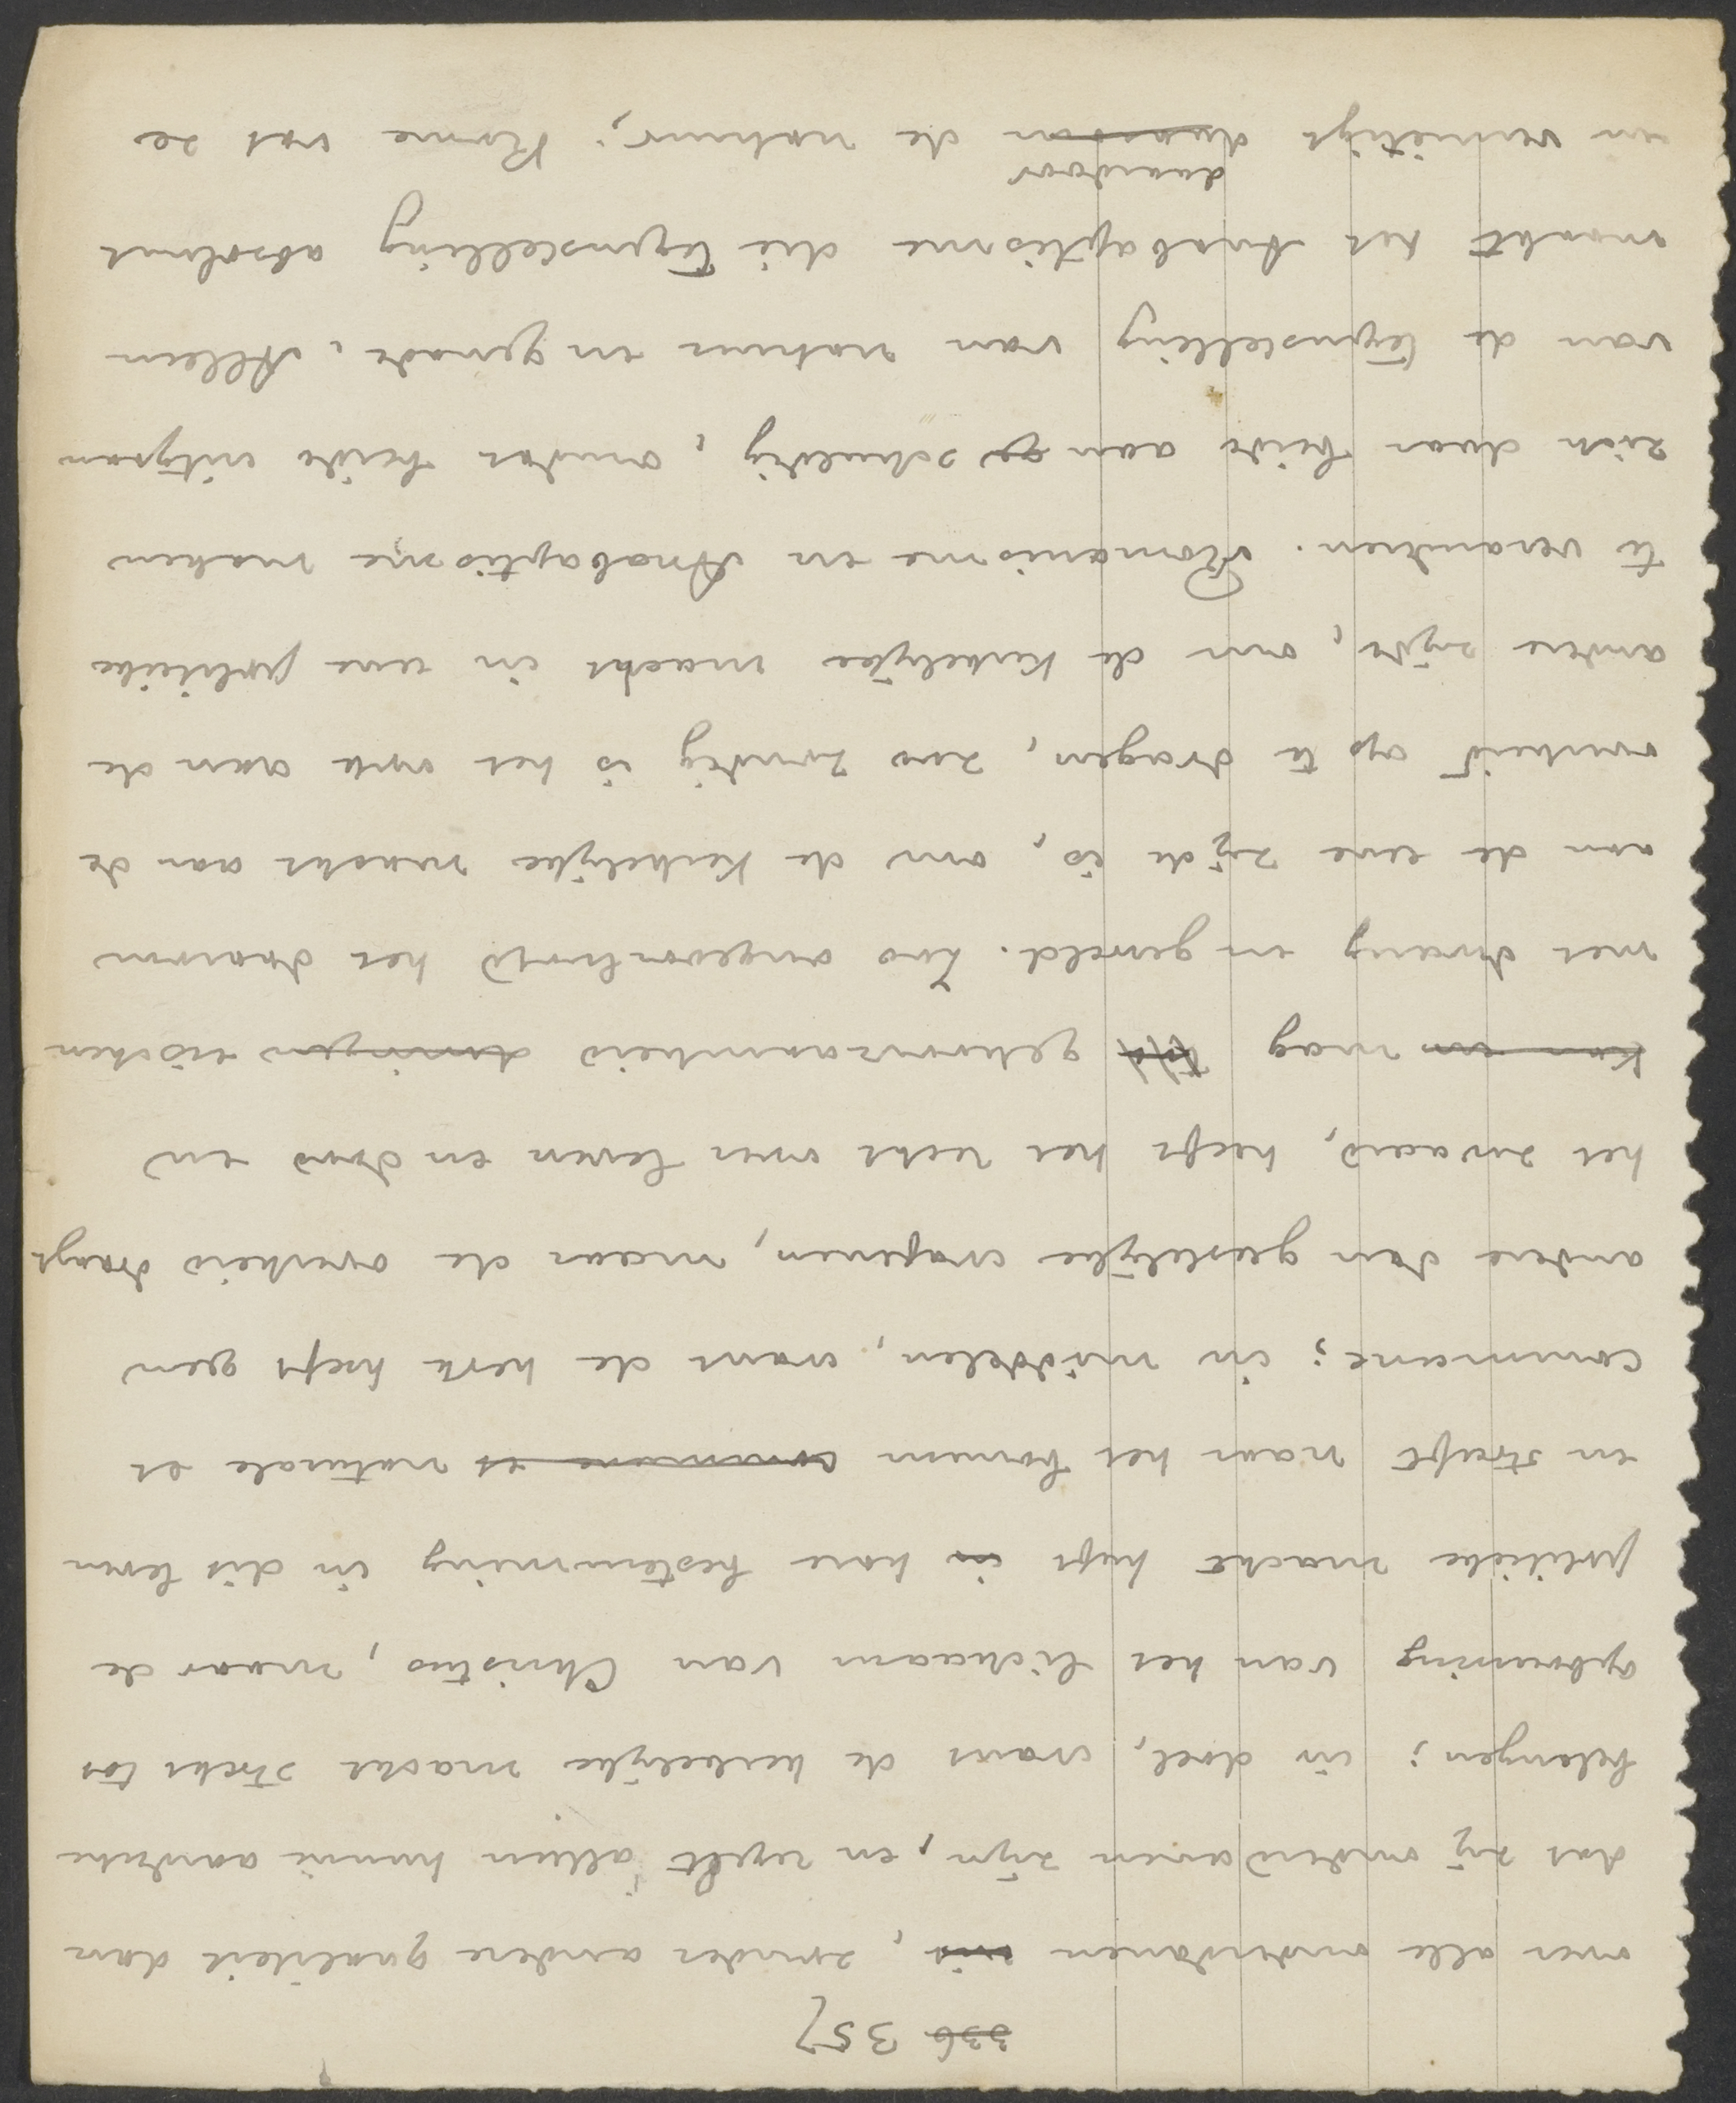 ~~336~~ 357
over alle onderdanen ~~uit~~, zonder andere qualiteit dan
dat zij onderdanen zijn, en regelt alleen hunne aardsche
belangen; in doel, want de kerkelijke macht strekt tot
opbouwing van het lichaam van Christus, maar de
politieke macht heeft ~~in~~ hare bestemming in dit leven
en streeft naar het bonum ~~commune et~~ naturale et
commune; in middelen, want de kerk heeft geen
andere dan geestelijke wapenen, maar de overheid draagt
het zwaard, heeft het recht over leven en dood en
~~kan en~~ mag gehoorzaamheid ~~dwingen~~ eischen
met dwang en geweld. Zoo ongeoorloofd het daarom
aan de eene zijde is, om de kerkelijke macht aan de
overheid op te dragen, zoo zondig is het ook aan de
andere zijde, om de kerkelijke macht in eene politieke
te veranderen. Romanisme en Anabaptisme maken
zich daar beide aan schuldig, omdat beide uitgaan
van de tegenstelling van natuur en genade. Alleen
maakt het Anabaptisme die tegenstelling absoluut
en vernietigt ~~daarom~~ daardoor de natuur; Rome vat ze